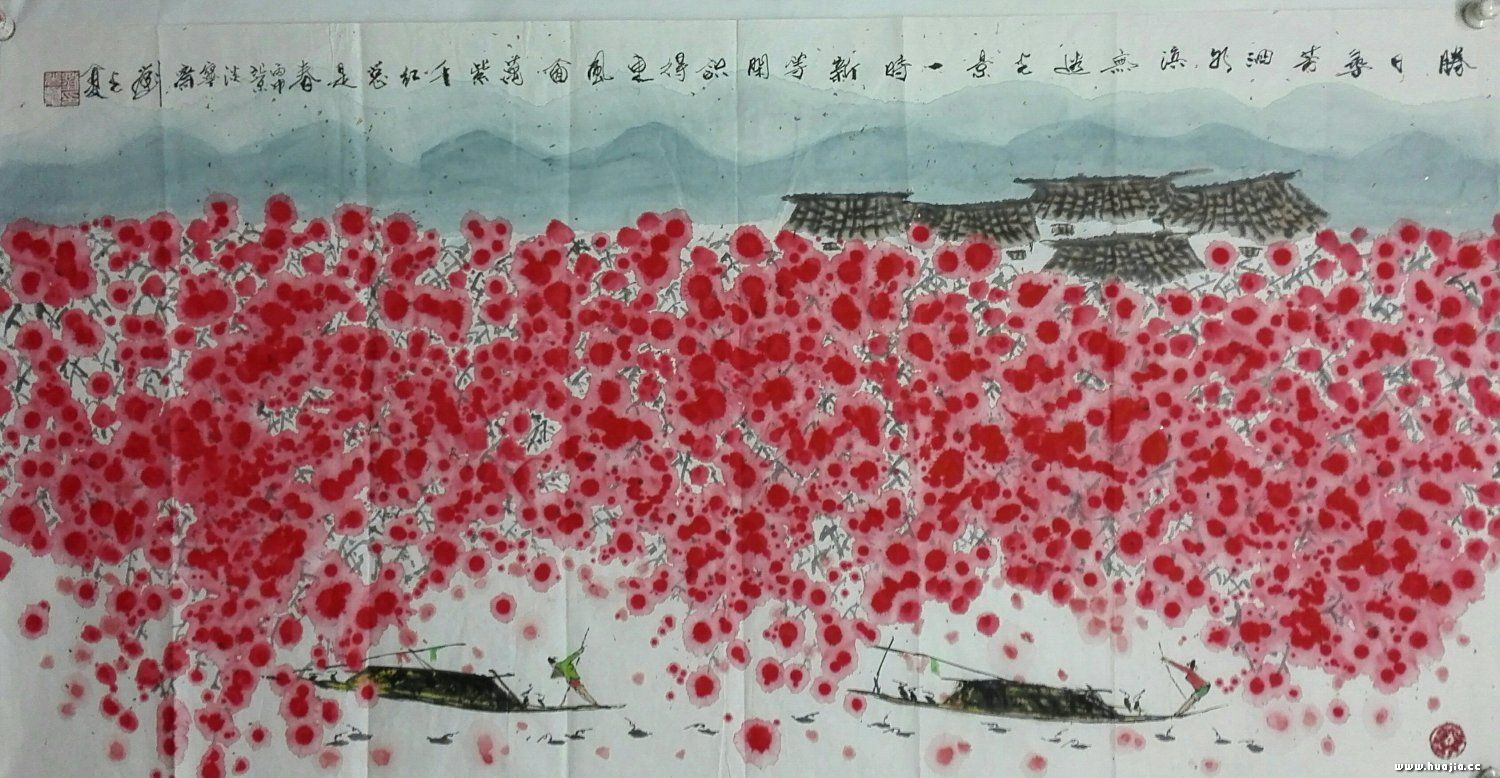 勝日尋芳泗水濱無邊光景一時新等閑識得東風面萬紫千紅總是春
www.huajia.cc